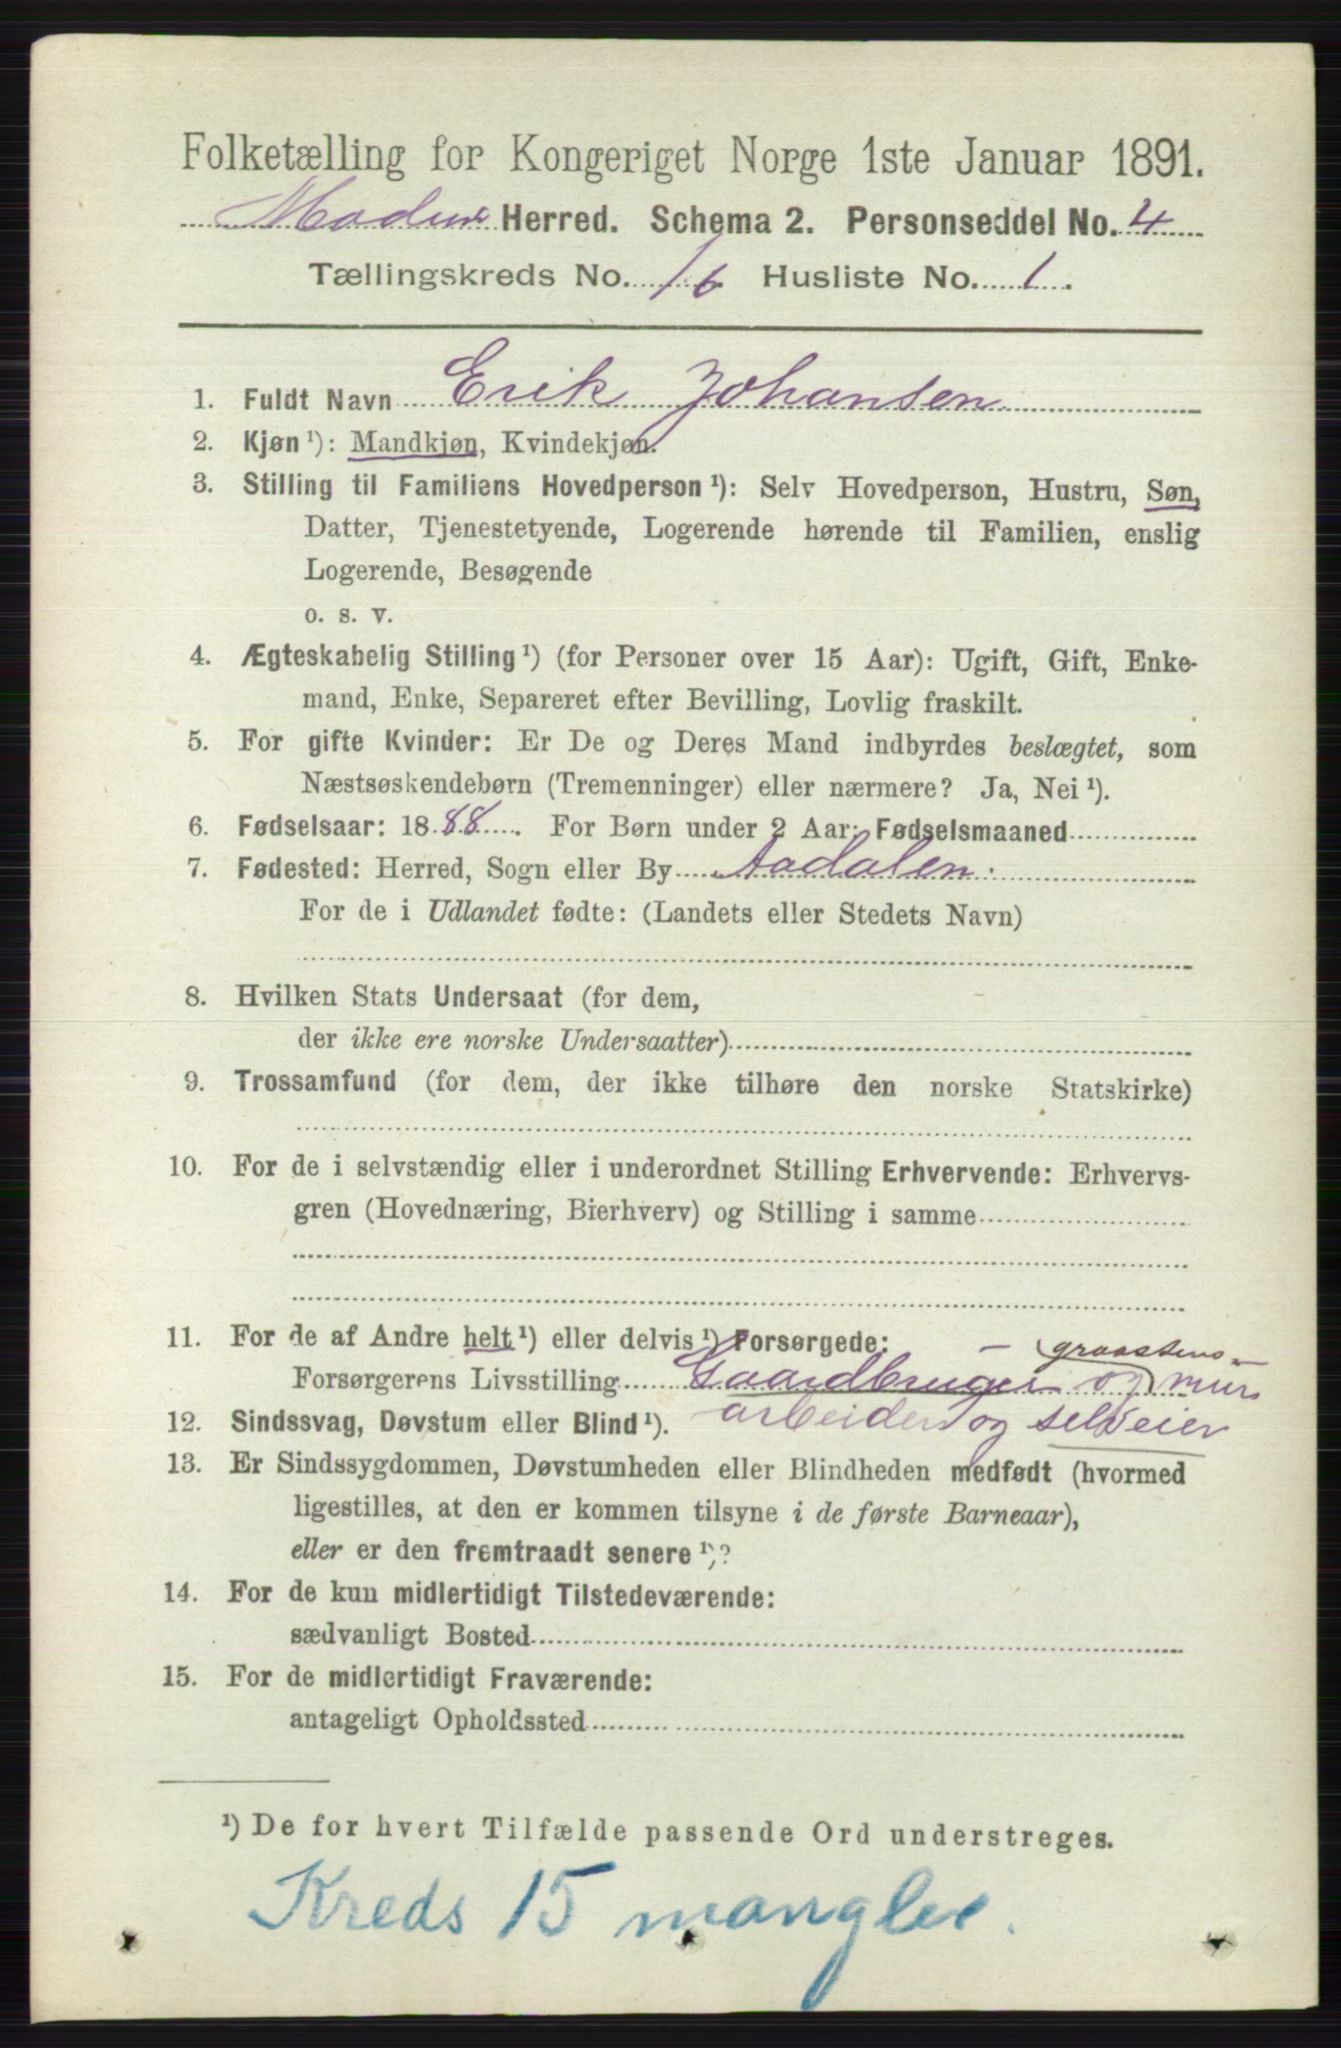 Folketælling for Kongeriget Norge 1ste Januar 1891.
Modum Herred. Schema 2. Personseddel No. 4
Tællingskreds No. 16 Husliste No. 1.
1. Fuldt Navn Erik Johansen
2. Kjøn ¹): Mandkjøn, Kvindekjøn.
3. Stilling til Familiens Hovedperson ¹): Selv Hovedperson, Hustru, Søn,
Datter, Tjenestetyende, Logerende hørende til Familien, enslig
Logerende, Besøgende
o. s. v.
4. Ægteskabelig Stilling ¹) (for Personer over 15 Aar): Ugift, Gift, Enke-
mand, Enke, Separeret efter Bevilling, Lovlig fraskilt.
5. For gifte Kvinder: Er De og Deres Mand indbyrdes beslægtet, som
Næstsøskendebørn (Tremenninger) eller nærmere? Ja, Nei ¹).
6. Fødselsaar: 1888. For Børn under 2 Aar: Fødselsmaaned
7. Fødested: Herred, Sogn eller By Aadalen.
For de i Udlandet fødte: (Landets eller Stedets Navn)
8. Hvilken Stats Undersaat (for dem,
der ikke ere norske Undersaatter)
9. Trossamfund (for dem, der ikke tilhøre den norske Statskirke)
10. For de i selvstændig eller i underordnet Stilling Erhvervende: Erhvervs-
gren (Hovednæring, Bierhverv) og Stilling i samme
11. For de af Andre helt ¹) eller delvis ¹) Forsørgede:
- graastens-
Forsørgerens Livsstilling Gaardbruger og mur
arbeider og selveier
12. Sindssvag, Døvstum eller Blind ¹).
13. Er Sindssygdommen, Døvstumheden eller Blindheden medfødt (hvormed
ligestilles, at den er kommen tilsyne i de første Barneaar),
eller er den fremtraadt senere ¹)?
14. For de kun midlertidigt Tilstedeværende:
sædvanligt Bosted
15. For de midlertidigt Fraværende:
antageligt Opholdssted
¹) De for hvert Tilfælde passende Ord understreges.
Kreds 15 mangler.